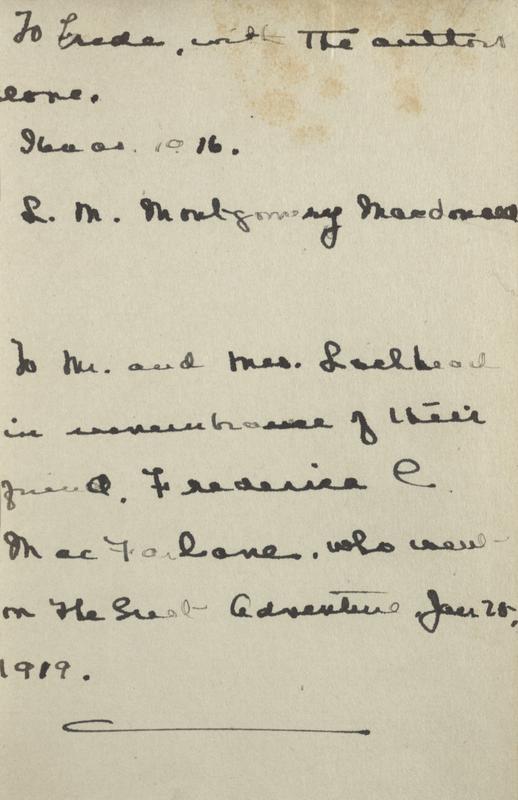 To Frede, with the author's
love.
Xmas. 1916.
L. M. Montgomery Macdonald
To Mr. and Mrs. Lochhead
in remembrance of their
friend, Frederica C.
MacFarlane, who went
on the Great Adventure, Jan 25,
1919.